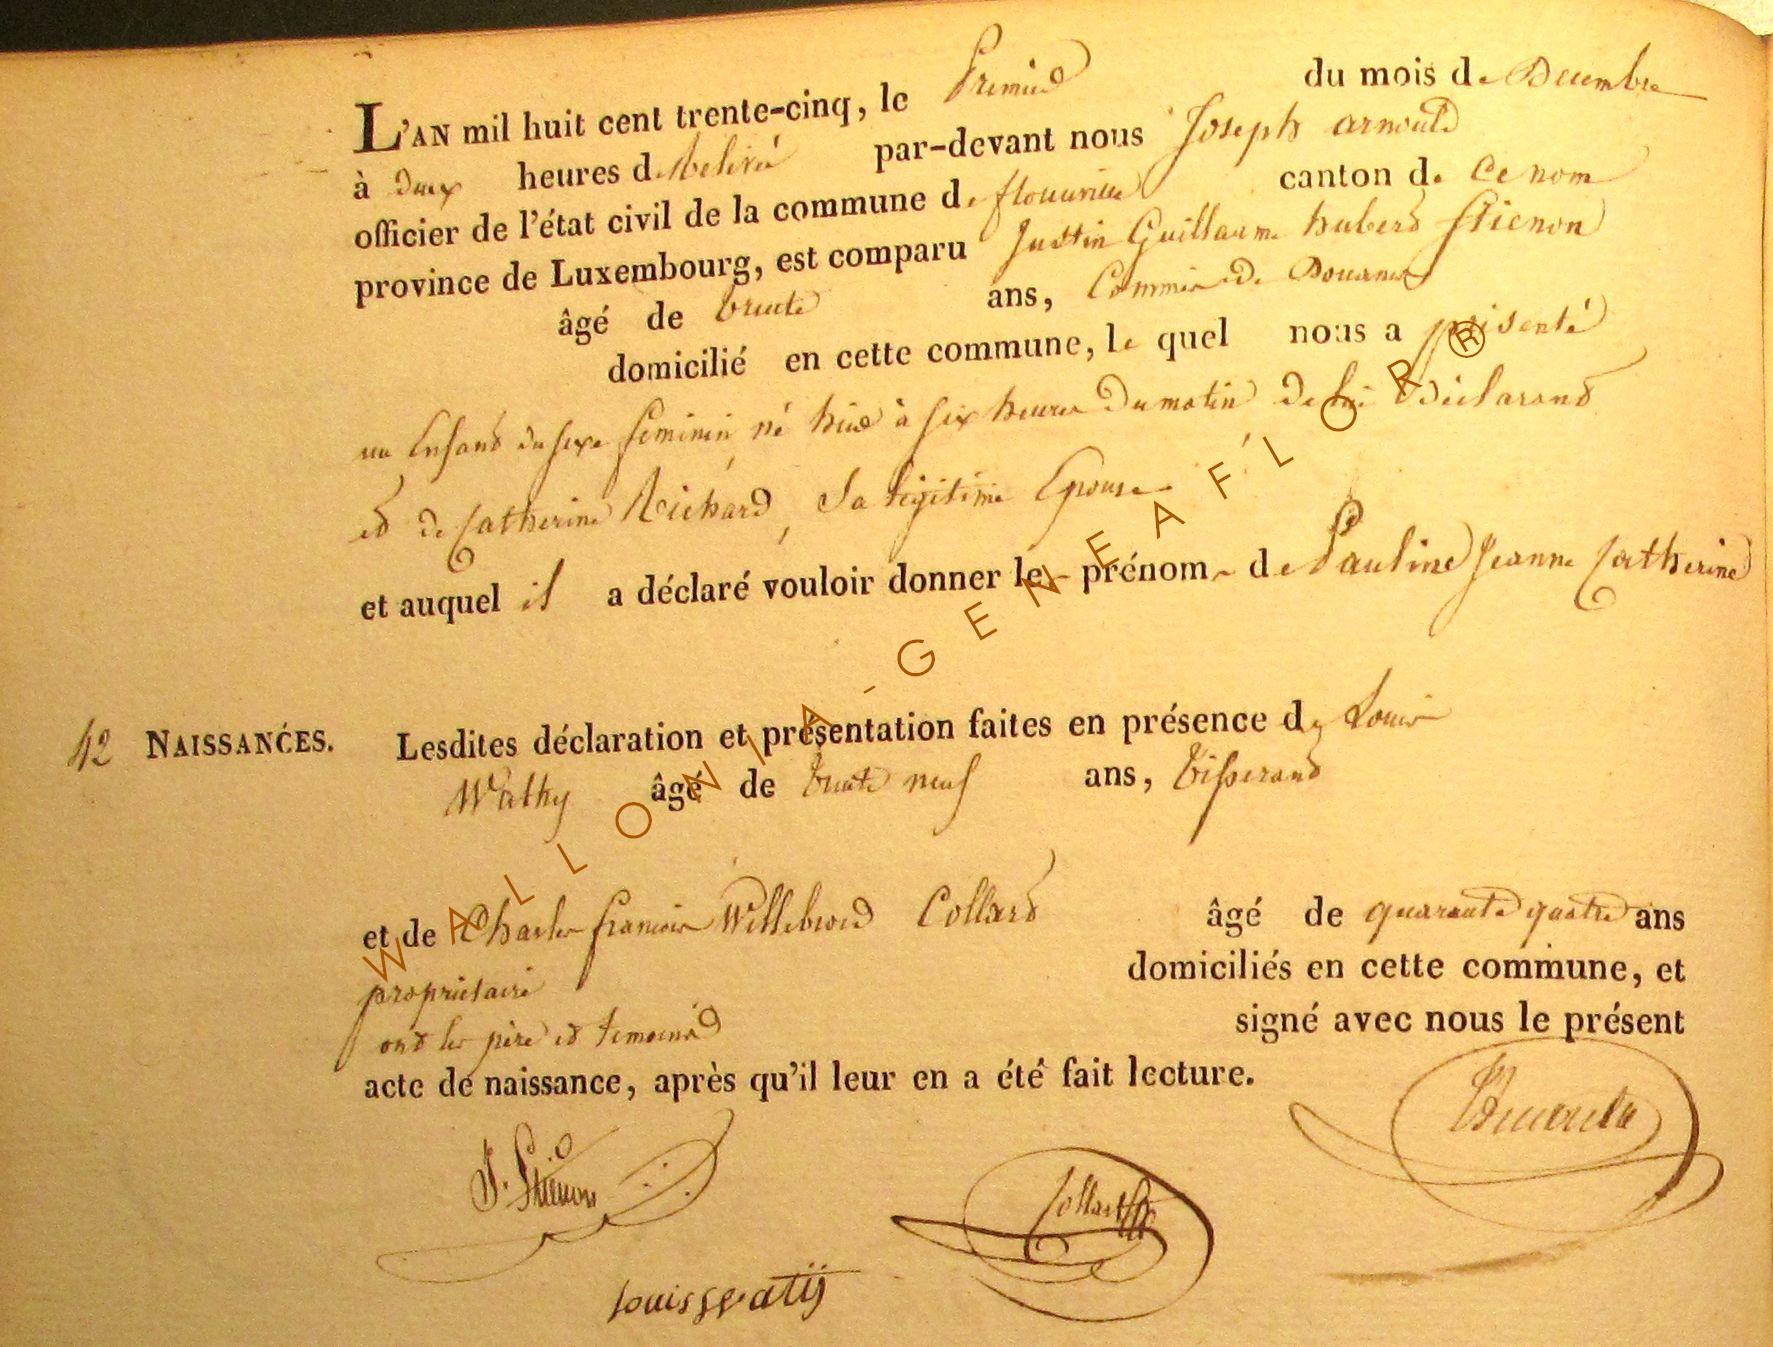 L'AN mil huit cent trente-cinq, le Premier du mois de Decembre
à deux heures de Relevée par-devant nous Joseph arnould
officier de l'état civil de la commune de florenville canton de Ce nom
province de Luxembourg, est comparu Justin Guillaume hubert Stienon
âgé de trente ans, Commis de Douanes
domicilié en cette commune, le quel nous a présenté
un Enfant du sexe féminin né hier à six heures du matin de lui déclarant
et de Catherine Richard, Sa légitime Epouse
et auquel il a déclaré vouloir donner les prénoms de Pauline Jeanne Catherine
42 NAISSANCES. Lesdites déclaration et présentation faites en présence de Louis
Wathy âgé de trente neuf ans, Tisserand
et de Charles françois Willebrord Collard âgé de quarante quatre ans
propriétaire domiciliés en cette commune, et
ont les père et temoins signé avec nous le présent
acte de naissance, après qu'il leur en a été fait lecture.
J. Stienon
Collard
louis watÿ
WALLONIA-GENEAFLOR®